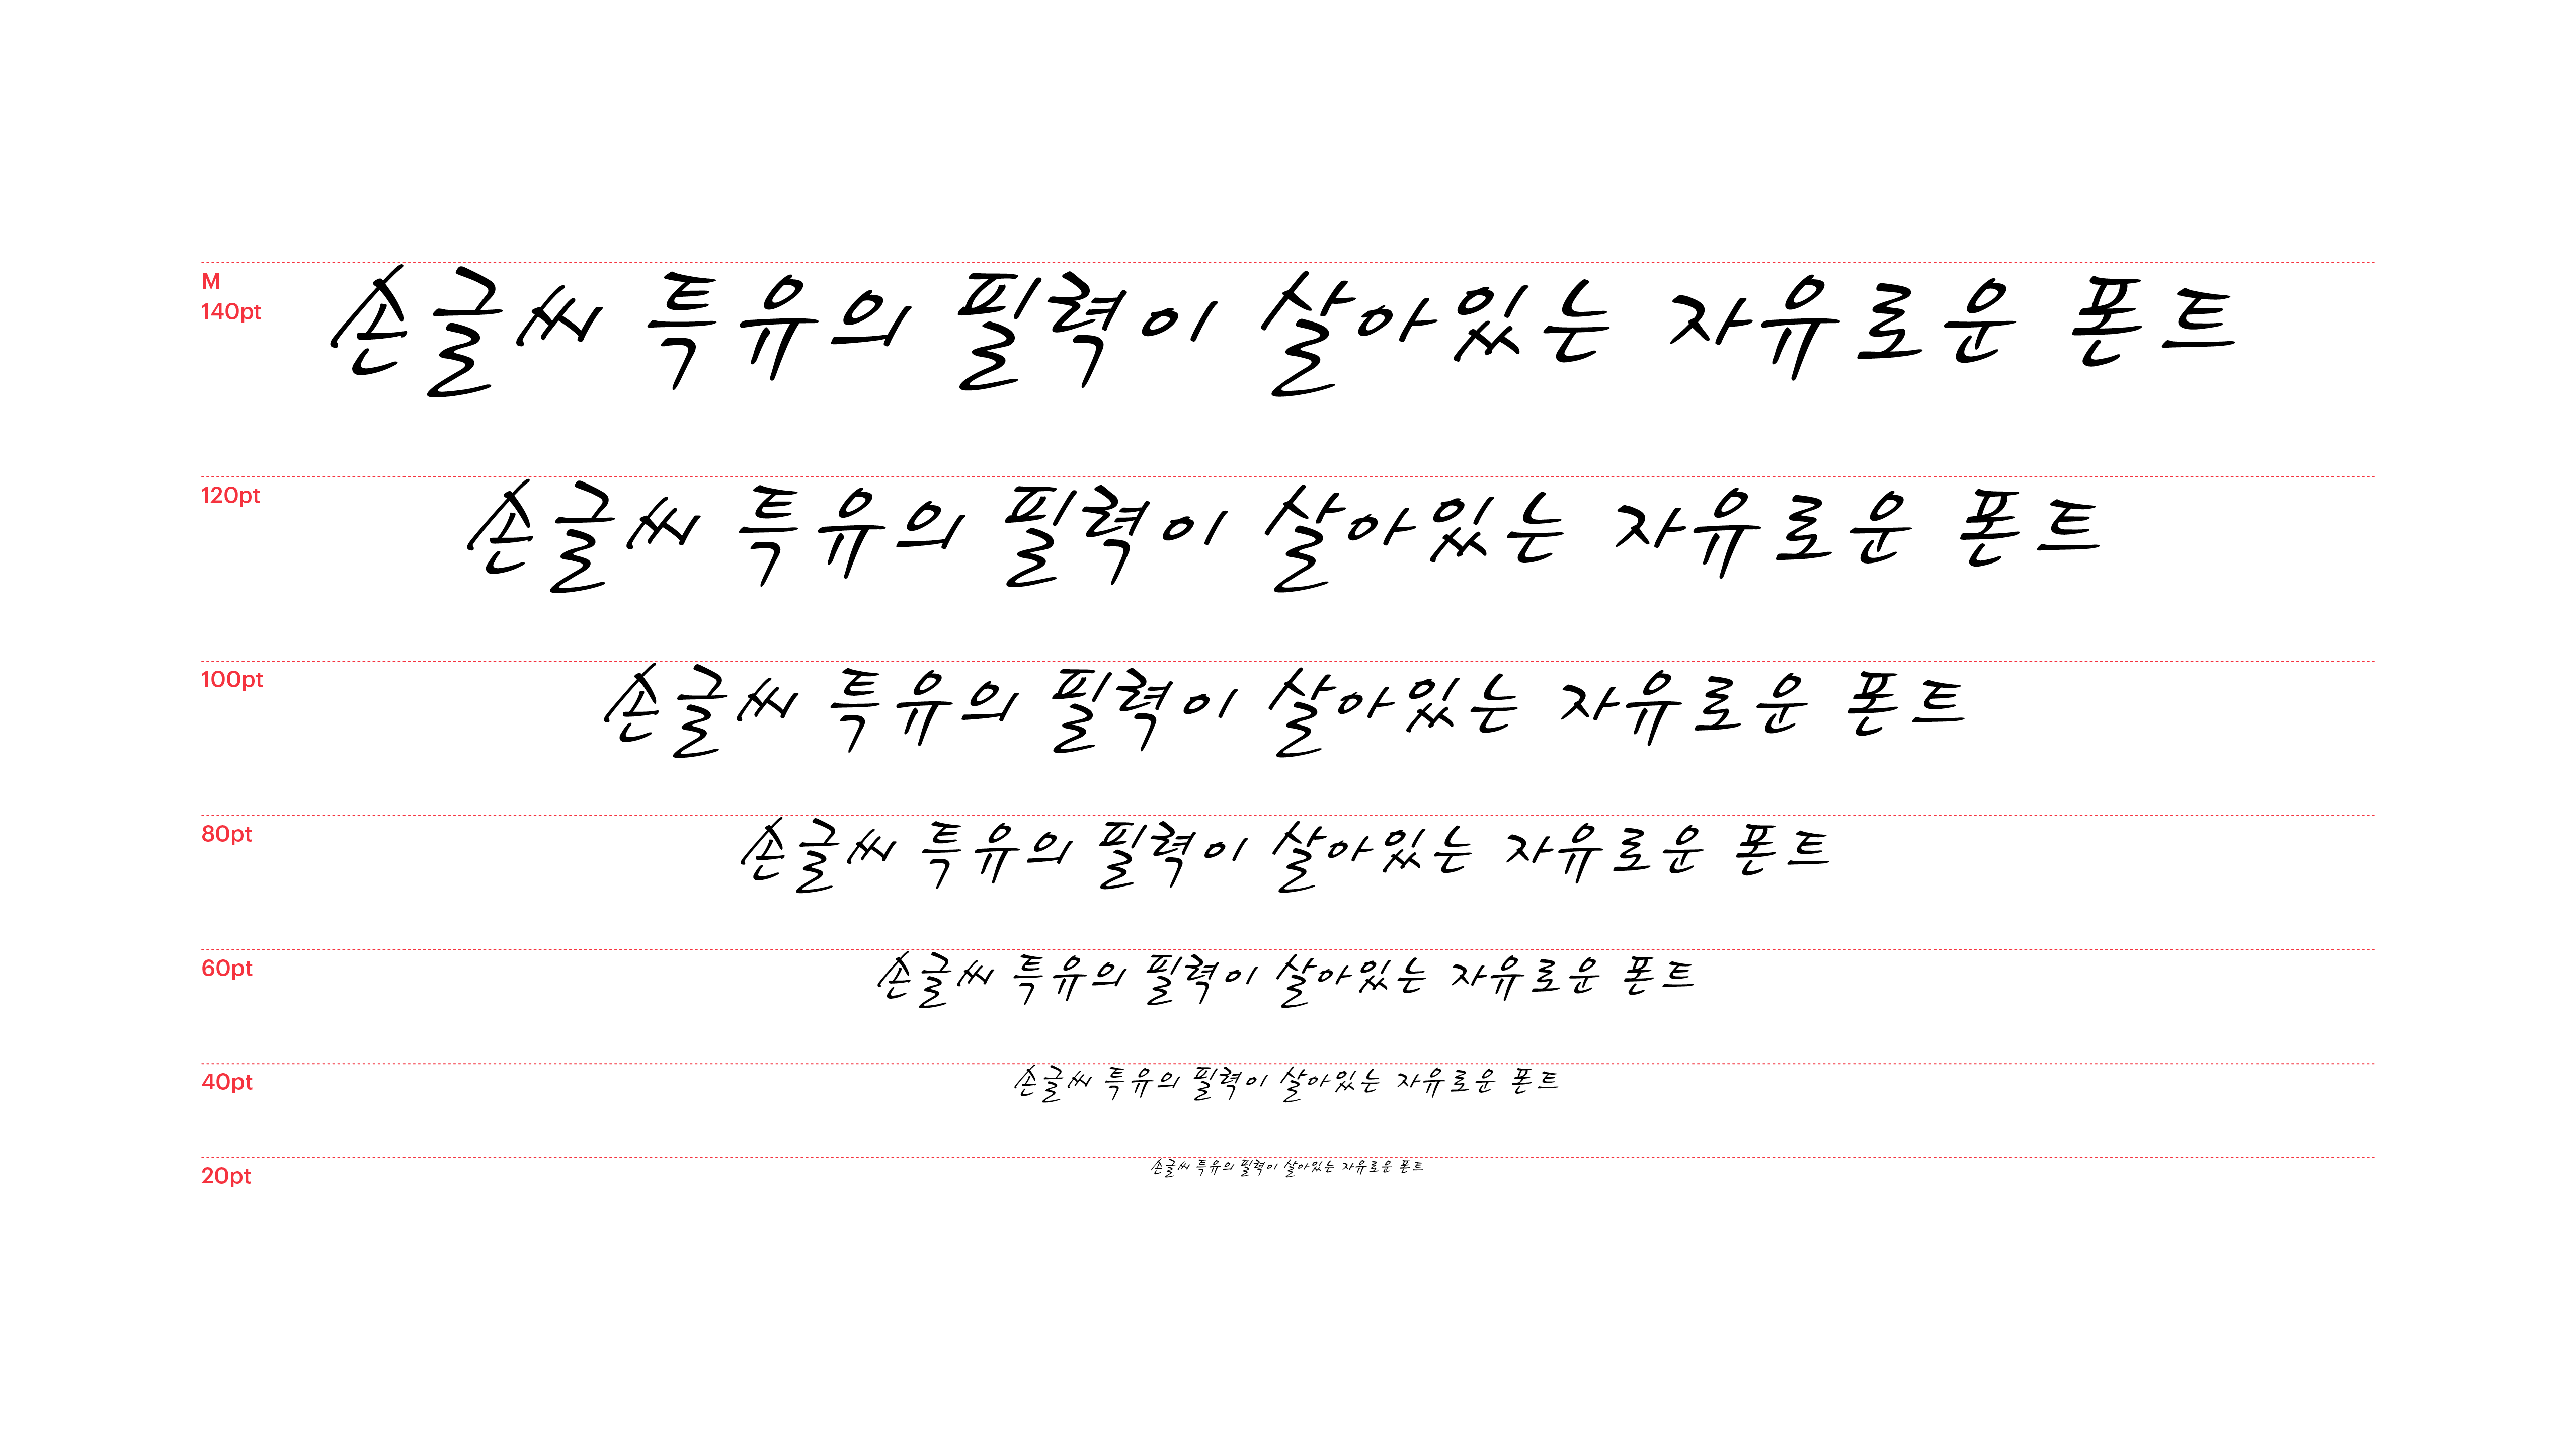 M
140pt
손글씨 특유의 필력이 살아있는 자유로운 폰트
120pt
손글씨 특유의 필력이 살아있는 자유로운 폰트
100pt
손글씨 특유의 필력이 살아있는 자유로운 폰트
80pt
손글씨 특유의 필력이 살아있는 자유로운 폰트
60pt
손글씨 특유의 필력이 살아있는 자유로운 폰트
40pt
손글씨 특유의 필력이 살아있는 자유로운 폰트
20pt
손글씨 특유의 필력이 살아있는 자유로운 폰트